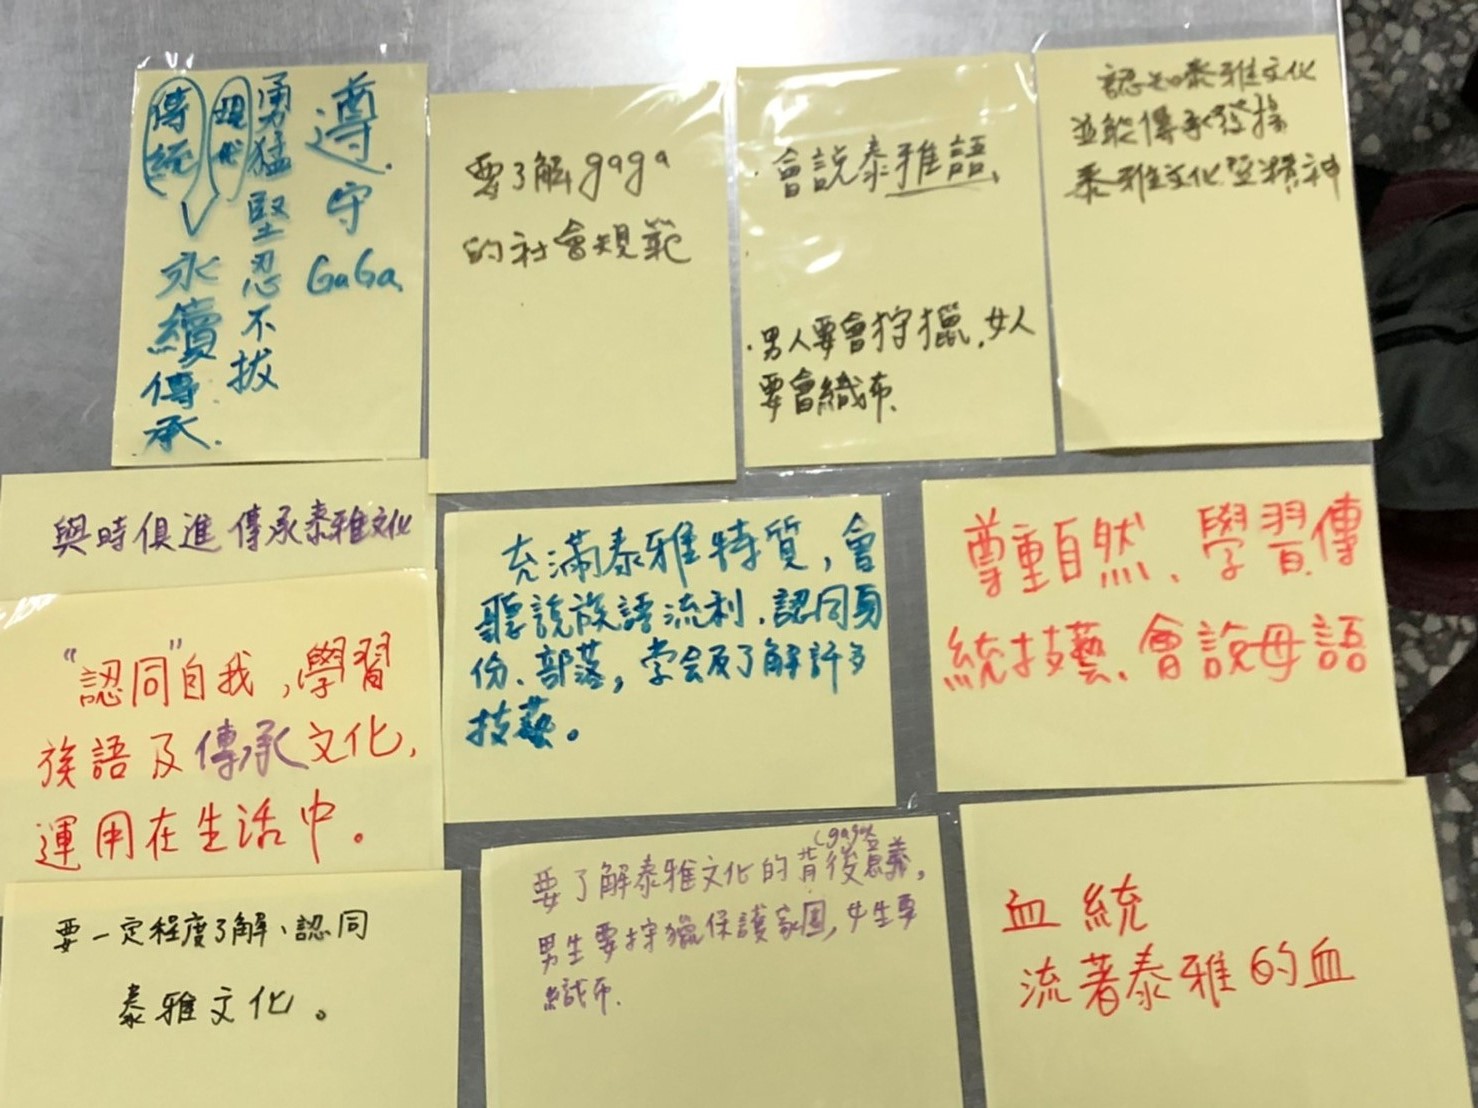 遵守GaGa,
勇猛堅忍不拔
現代
傳統
永續傳承.
要了解gaga
的社會規範
·會說泰雅語,
·男人要會狩獵,女人
要會織布.
認知泰雅文化
並能傳承發揚
泰雅文化暨精神
與時俱進 傳承泰雅文化
充滿泰雅特質,會
聽說族語流利.認同身
份、部落,学会及了解許多
技藝。
尊重自然、學習傳
統技藝、會說母語
"認同"自我,學習
族語及傳承文化,
運用在生活中。
要一定程度了解、認同
泰雅文化。
(gaga)
要了解泰雅文化的背後意義,
男生要狩獵保護家園,女生要
織布.
血統
流著泰雅的血